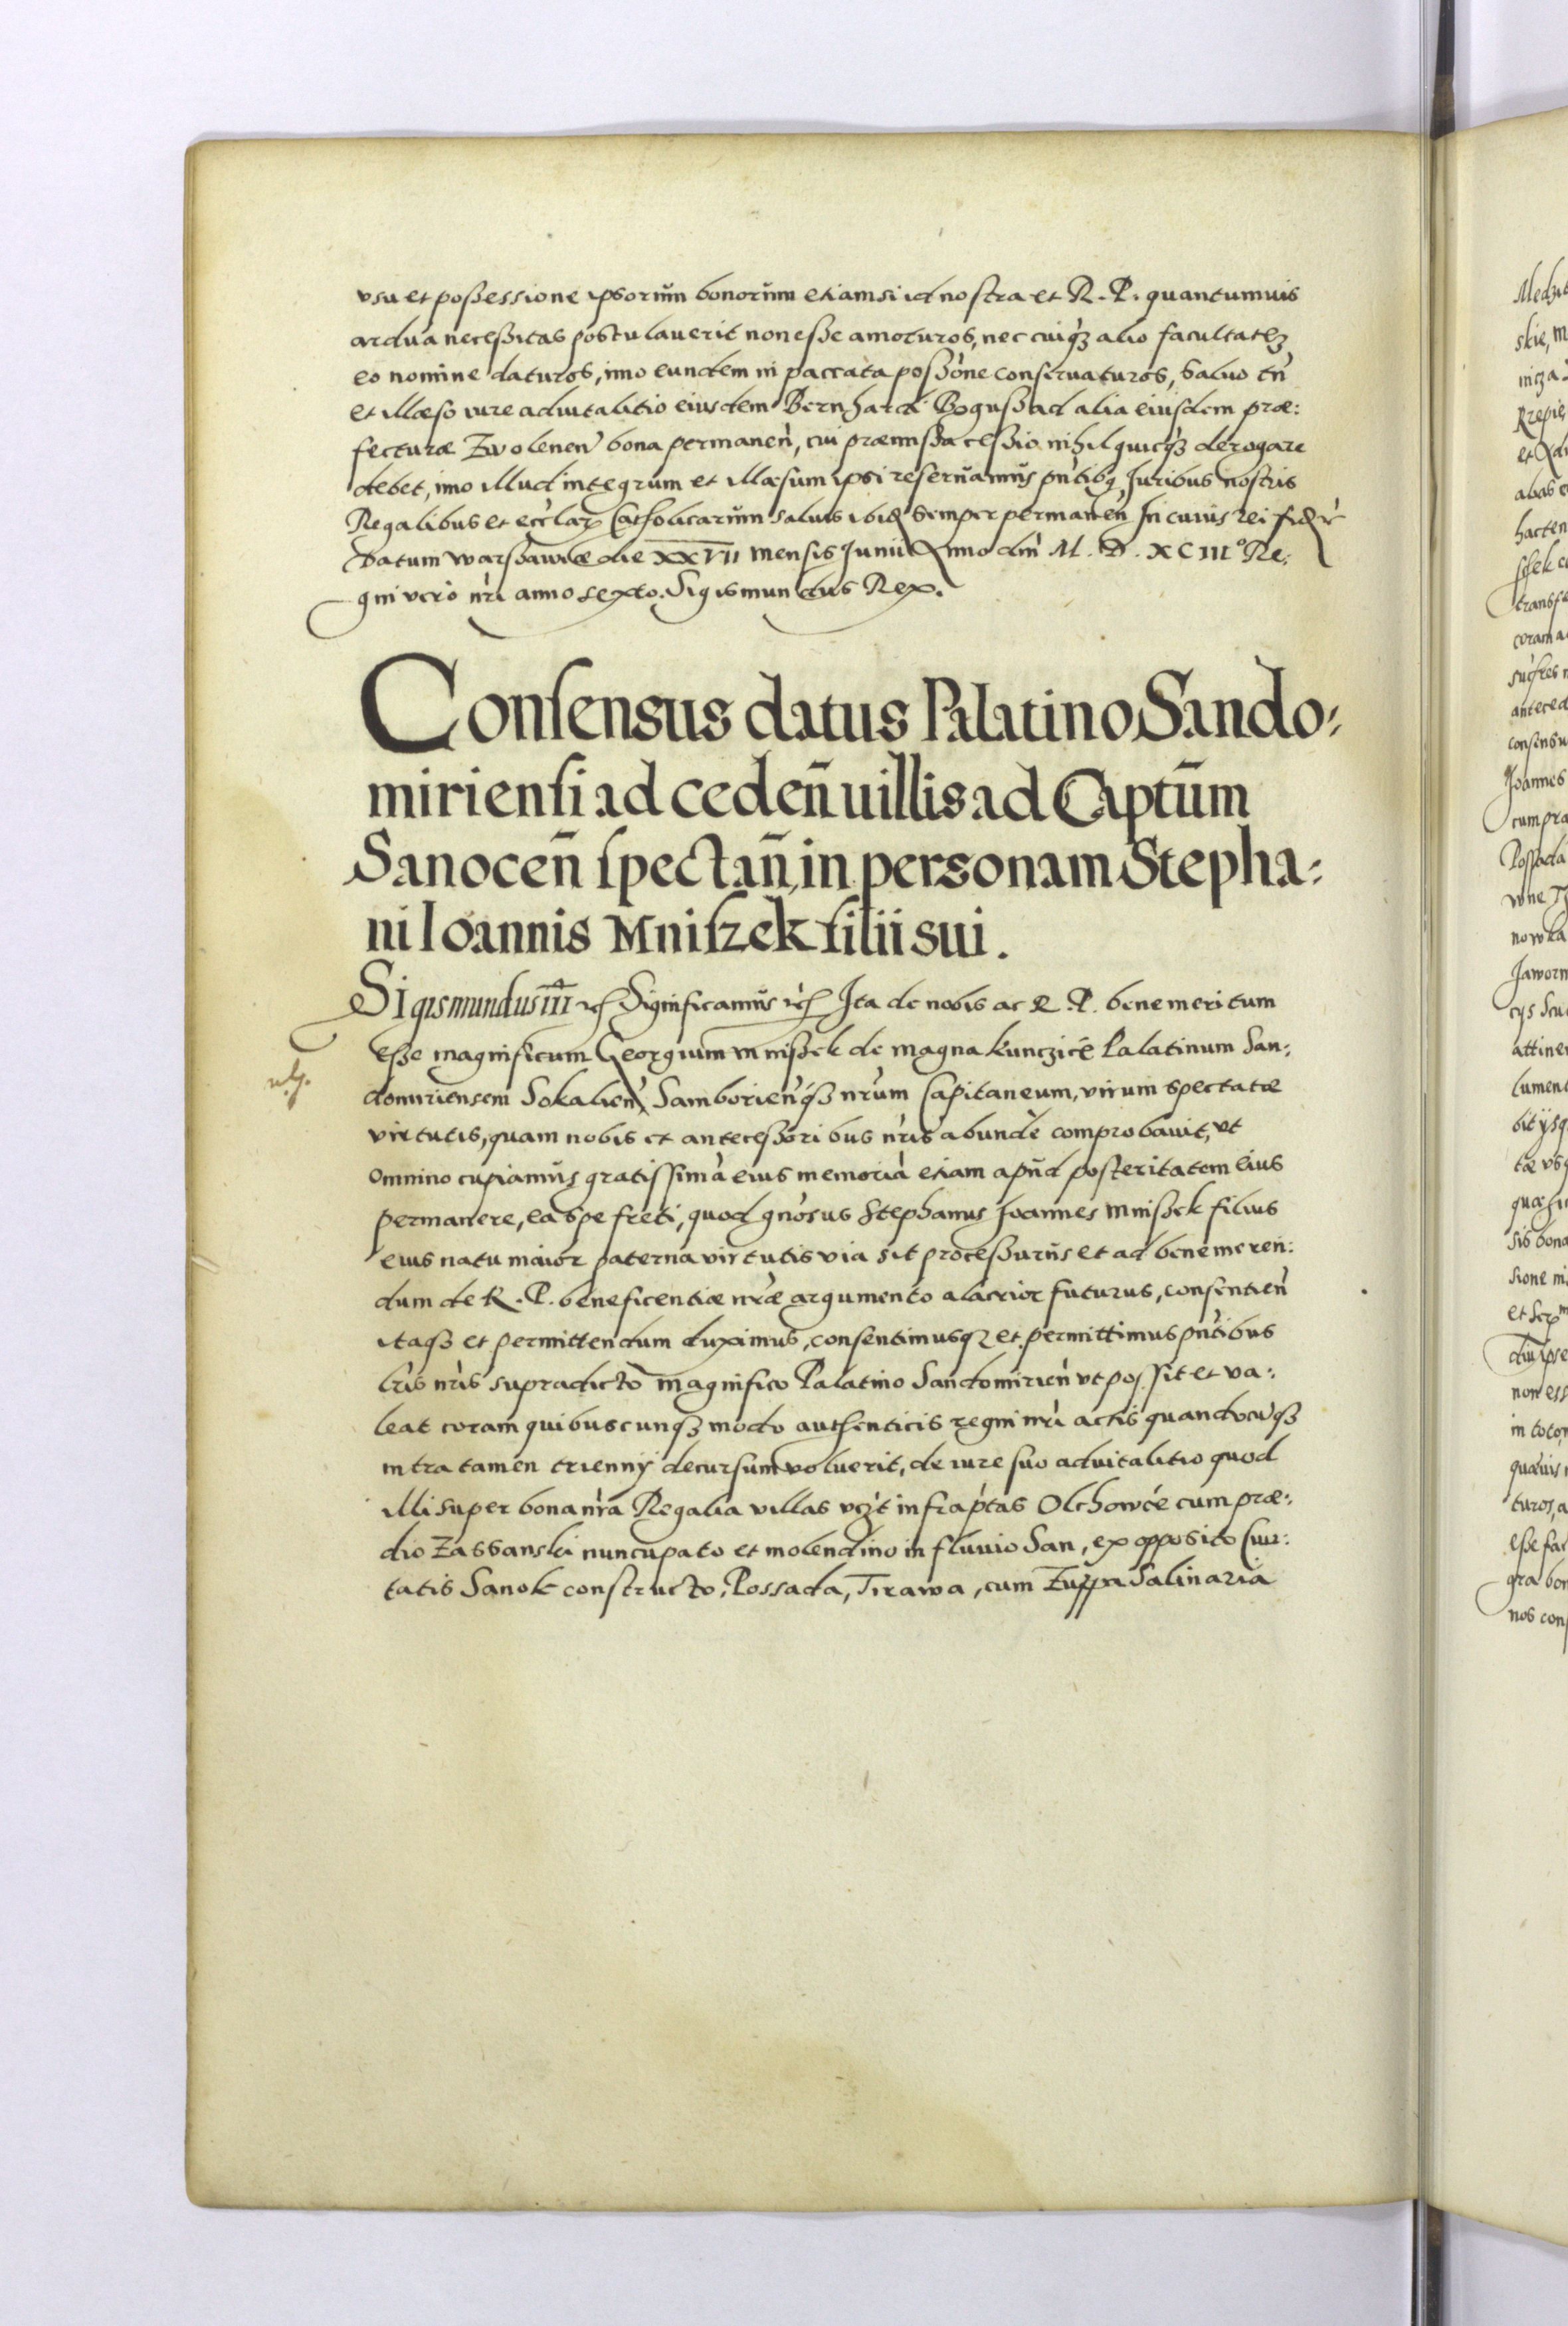 vsu et possessione ipsorum bonorum etiamsi id nostra et R. P. quantumuis
ardua necessitas postulauerit non esse amoturos, nec cuiqꝫ alio facultatēꝫ
eo nomine daturos, imo eundem in paccata possōne conseruaturos, saluo tn̄
et illæso iure aduitalitio eiusdem Bernhardi Boguss ad alia eiusdem præ:
fecturæ Zwolenen̄ bona permanen̄, cui præmissa cessio nihil quicqꝫ derogare
debet, imo illud integrum et illæsum ipsi reseruamus pn̄tibꝫ Juribus nostris
Regalibus et ecclãꝝ Catholicarum saluis ibidꝫ semper permanen̄ In cuius rei fidꝫ
Datum Warssauiæ die XXVII mensis Junii Anno dn̄i M. D. XCIIIº Re:
gni vero nr̄i anno sexto. Sigismundus Rex.
Consensus datus Palatino Sando:
miriensi ad ceden̄ uillis ad Captūm
Sanocen̄ spectan̄, in personam Stepha:
ni Ioannis Mniszek filii sui.
Sigismundus III Significamus Ita de nobis ac R. P. benemeritum
esse magnificum Georgium Mnissek de magna Kunczicē Palatinum San:
domiriensem Sokalien̄ Samborien̄qꝫ nr̄um Capitaneum, virum spectatæ
virtutis, quam nobis et antecessoribus nr̄is abundè comprobauit, vt
omnino cupiamus gratissimā eius memoriā etiam apud posteritatem eius
permanere, ea spe freti, quod gn̄osus Stephanus Joannes Mnissek filius
eius natu maior paterna virtutis via sit processurus et ad benemeren:
dum de R. P. beneficentiæ nr̄æ argumento alacrior futurus, consentien̄
itaqꝫ et permittendum duximus, consentimusqꝫ et permittimus pn̄tibus
lr̄is nr̄is supradicto magnifico Palatino Sandomirien̄ vt possit et va:
leat coram quibuscunqꝫ modo authenticis regni nr̄i actis quandocūqꝫ
intra tamen trienny decursum voluerit, de iure suo aduitalitio quod
illi super bona nr̄a Regalia villas vczt infrāptas Olchowcé cum præ:
dio Zassanski nuncupato et molendino in fluuio San, ex opposito Ciui:
tatis Sanok constructo, Possada, Tirawa, cum Zuppa Salinaria